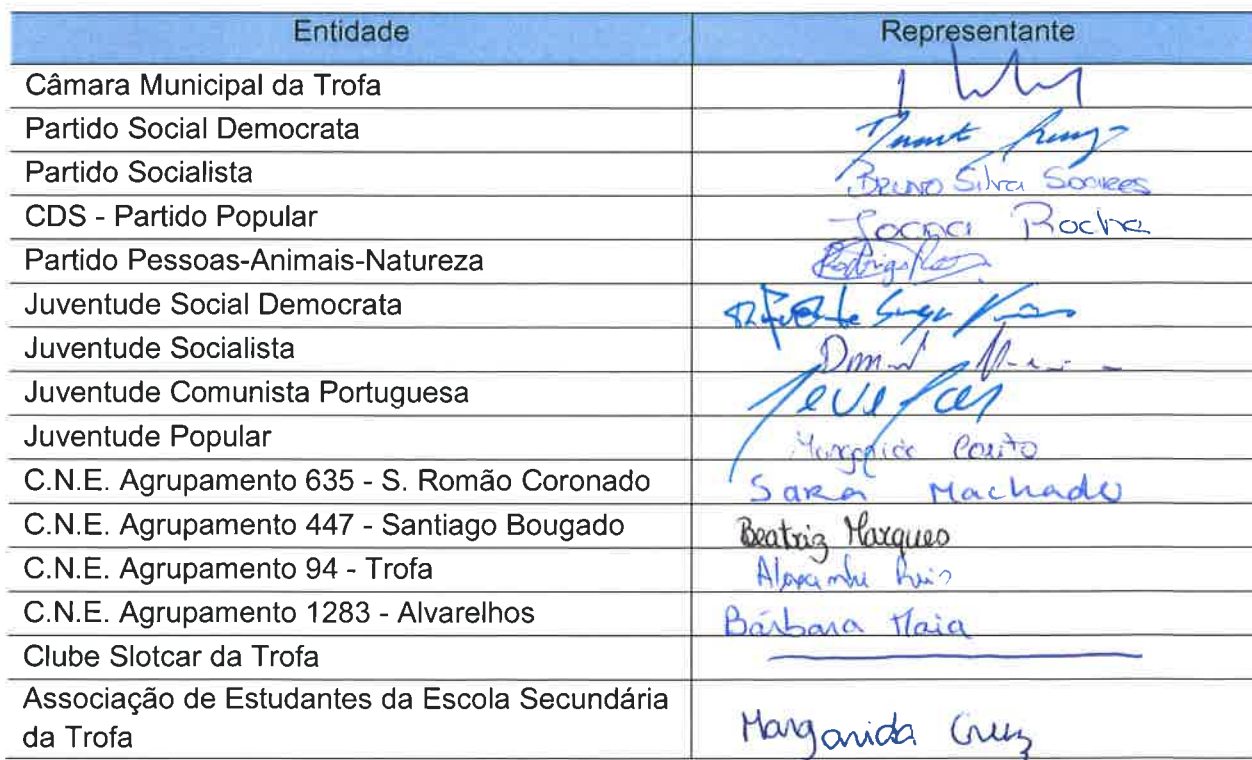 Entidade Representante
Câmara Municipal da Trofa
Partido Social Democrata
Partido Socialista Bruno Silva Soares
CDS - Partido Popular Joana Rocha
Partido Pessoas-Animais-Natureza Rodrigo
Juventude Social Democrata
Juventude Socialista
Juventude Comunista Portuguesa
Juventude Popular Margarida Couto
C.N.E. Agrupamento 635 - S. Romão Coronado Sara Machado
C.N.E. Agrupamento 447 - Santiago Bougado Beatriz Marques
C.N.E. Agrupamento 94 - Trofa
C.N.E. Agrupamento 1283 - Alvarelhos Bárbara Maia
Clube Slotcar da Trofa
Associação de Estudantes da Escola Secundária
da Trofa Margarida Cruz